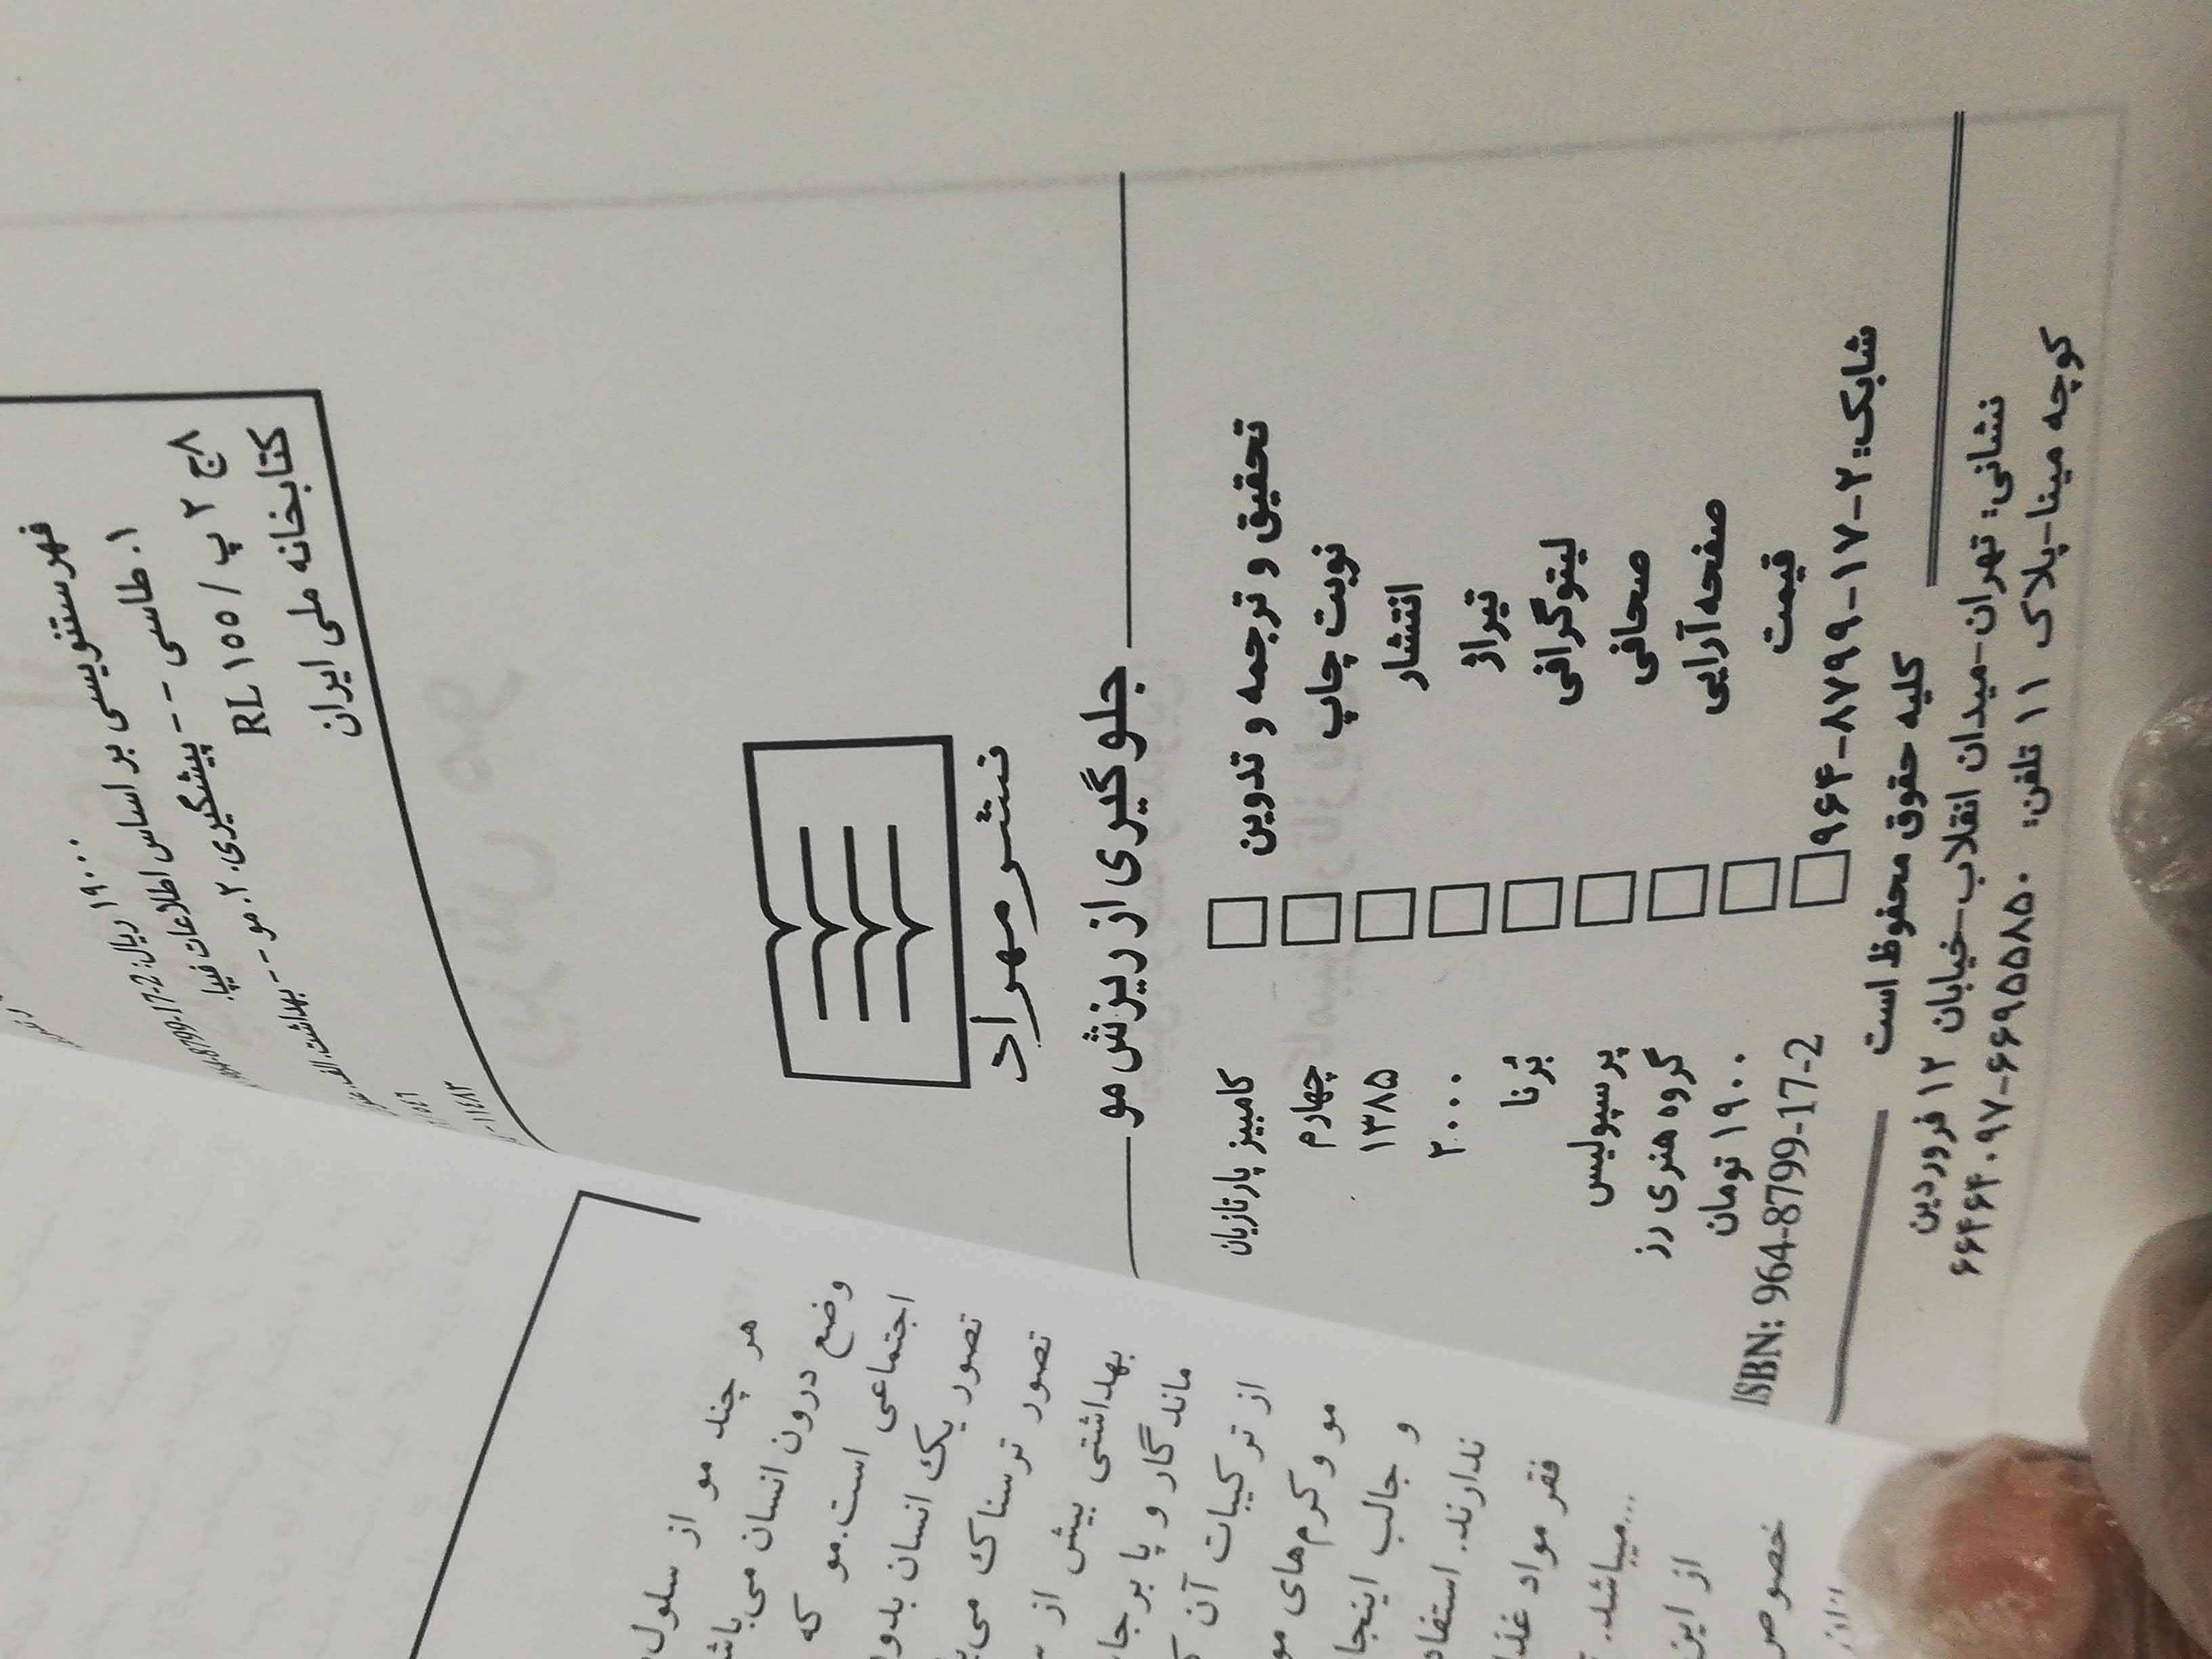 ۱۹۰۰۰ ریال: 964-8799-17-2
فهرستنویسی بر اساس اطلاعات فیپا.
۱. طاسی -- پیشگیری. ۲. مو -- بهداشت. الف. عنوان
۸ج ۲ پ / RL ۱۵۵
کتابخانه ملی ایران
نشر مهراد
جلوگیری از ریزش مو
تحقیق و ترجمه و تدوین □ کامبیز پارتازیان
نوبت چاپ □ چهارم
انتشار □ ۱۳۸۵
تیراژ □ ۲۰۰۰
لیتوگرافی □ بُرنا
صحافی □ پرسپولیس
صفحه‌آرایی □ گروه هنری رز
قیمت □ ۱۹۰۰ تومان
شابک: ۲-۱۷-۸۷۹۹-۹۶۴ □ ISBN: 964-8799-17-2
کلیه حقوق محفوظ است
نشانی: تهران-میدان انقلاب-خیابان ۱۲ فروردین
کوچه مینا-پلاک ۱۱ تلفن: ۶۶۹۵۵۸۵۰-۶۶۴۶۴۰۹۷
هر چند مو از سلول
وضع درون انسان می‌باش
اجتماعی است. مو که
تصور یک انسان بدو
تصور ترسناک می‌
بهداشتی بیش از
ماندگار و پا برجا
از ترکیبات آن
مو و کرم‌های مو
و جالب اینجا
ندارند. استفاد
فقر مواد غذ
میباشد...
از این
خصوص